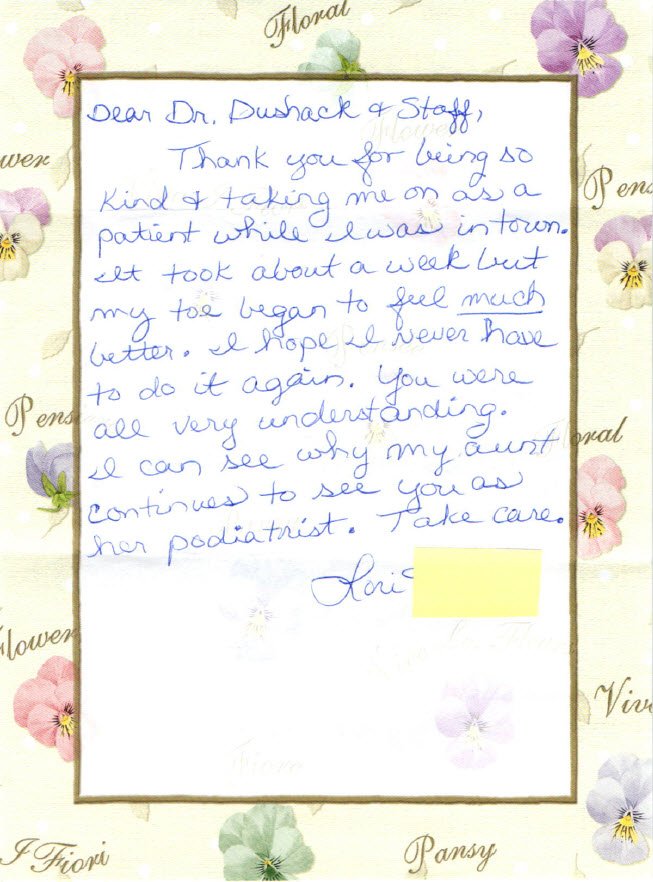 Floral
Dear Dr. Dushack & Staff,
Flower
Thank you for being so
wer
Kind & taking me on as a
Pens
patient while I was in town.
It took about a week but
my toe began to feel much
better. I hope I never have
to do it again. You were
Pens
all very understanding.
oral
I can see why my aunt
continues to see you as
her podiatrist. Take care.
Lori
lower
Viv
Fiori
I Fiori
Pansy